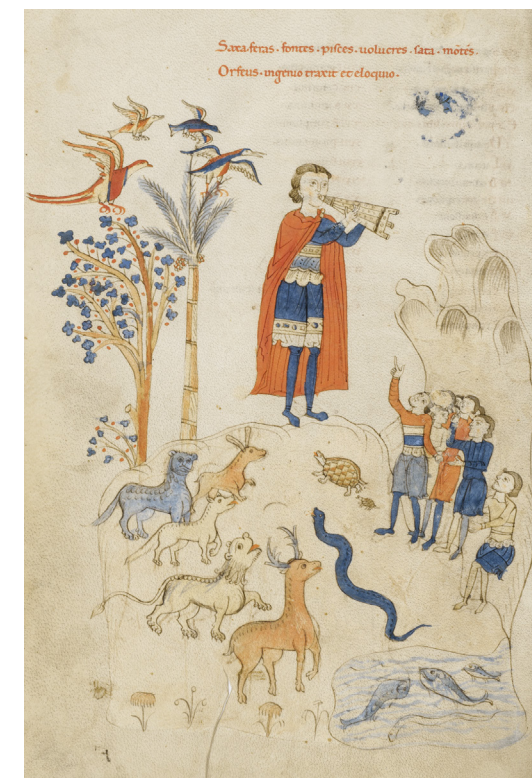 Saxa·feras·fontes·pisces·uolucres·sata·mōtes·
Orfeus·ingenio traxit et eloquio·